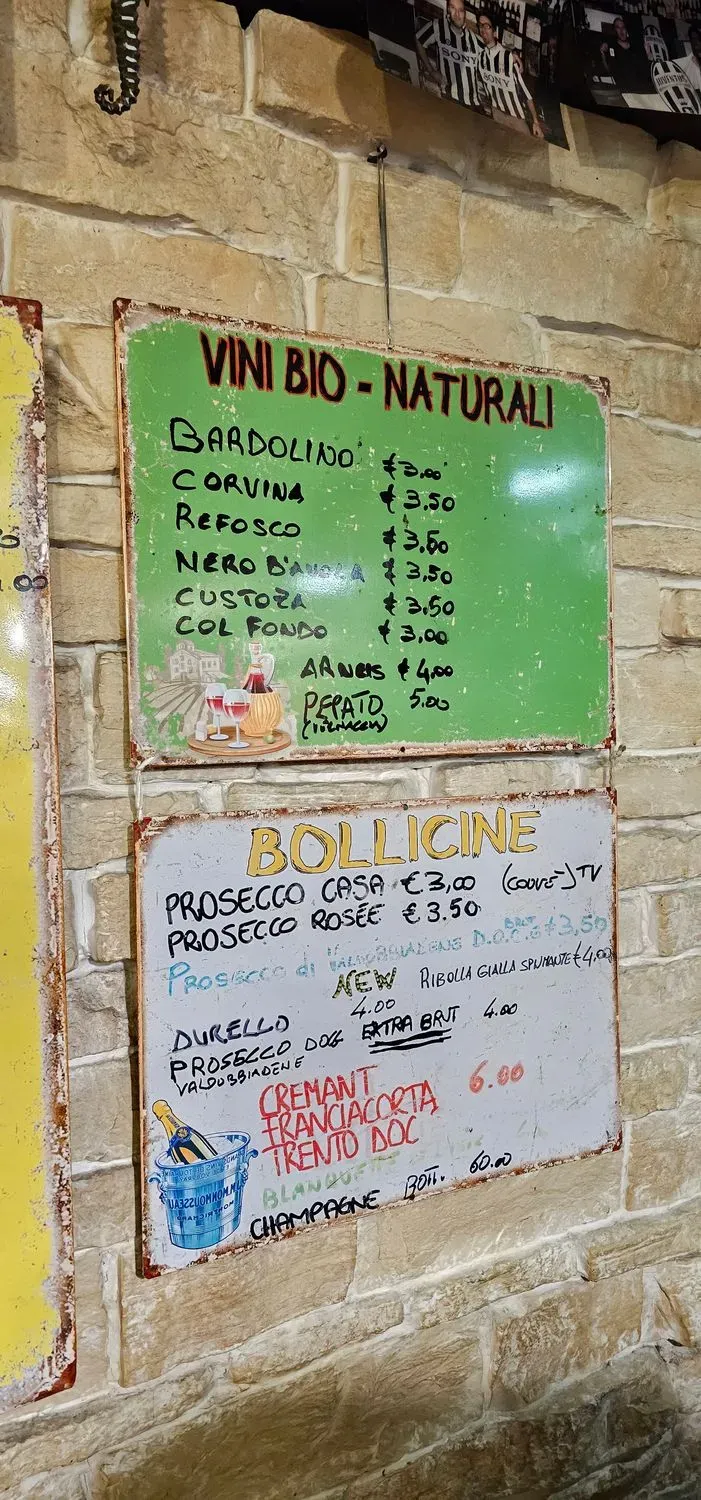 SONY
SONY
JUVENTUS
VINI BIO - NATURALI
BARDOLINO € 3,00
CORVINA € 3,50
REFOSCO € 3,50
NERO D'AVOLA € 3,50
CUSTOZA € 3,50
COL FONDO € 3,00
ARNEIS € 4,00
PEPATO 5,00
(VERNACCIA)
00
BOLLICINE
PROSECCO CASA € 3,00 (COUVE-) TV
PROSECCO ROSÉE € 3.50
PROSECCO di VALDOBBIADENE D.O.C.G BRUT € 3,50
NEW RIBOLLA GIALLA SPUMANTE € 4,00
DURELLO 4.00
PROSECCO DOCG EXTRA BRUT 4.00
VALDOBBIADENE
CREMANT 6.00
FRANCIACORTA
TRENTO DOC
BLANQUETTE
CHAMPAGNE BOTT. 60.00